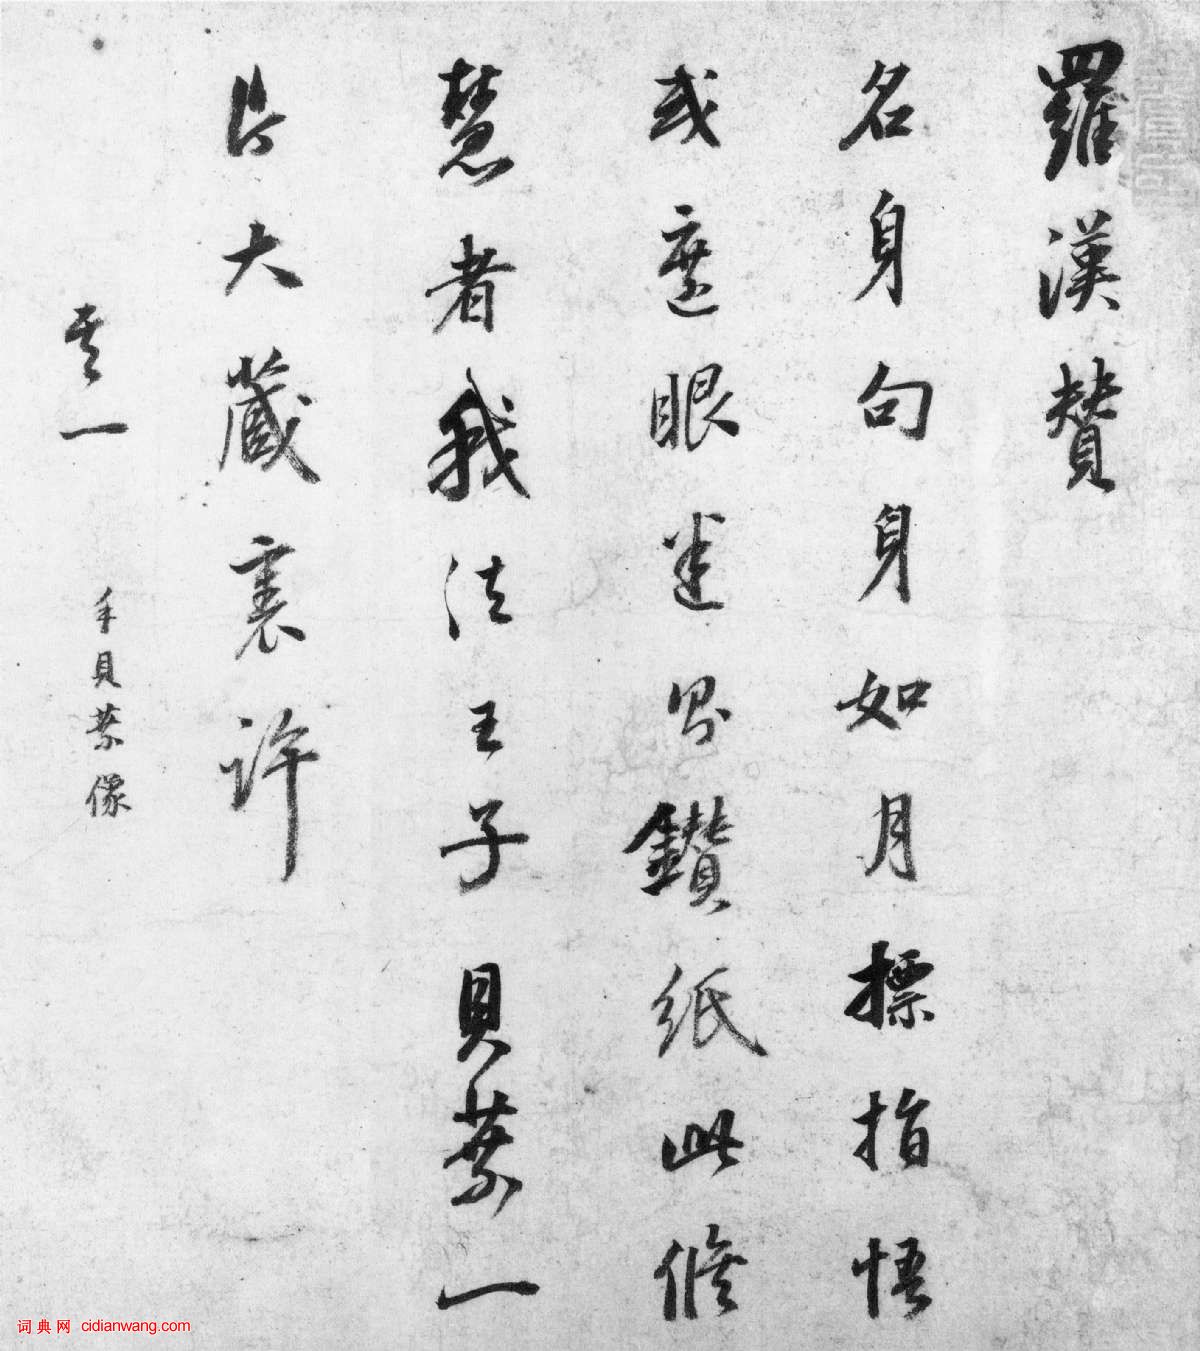 羅漢贊
名身句身如月標指悟
或遮眼迷則鑽紙此修
慧者我法王子貝葉一
片大藏裏許
其一 手貝葉像
词典网 cidianwang.com